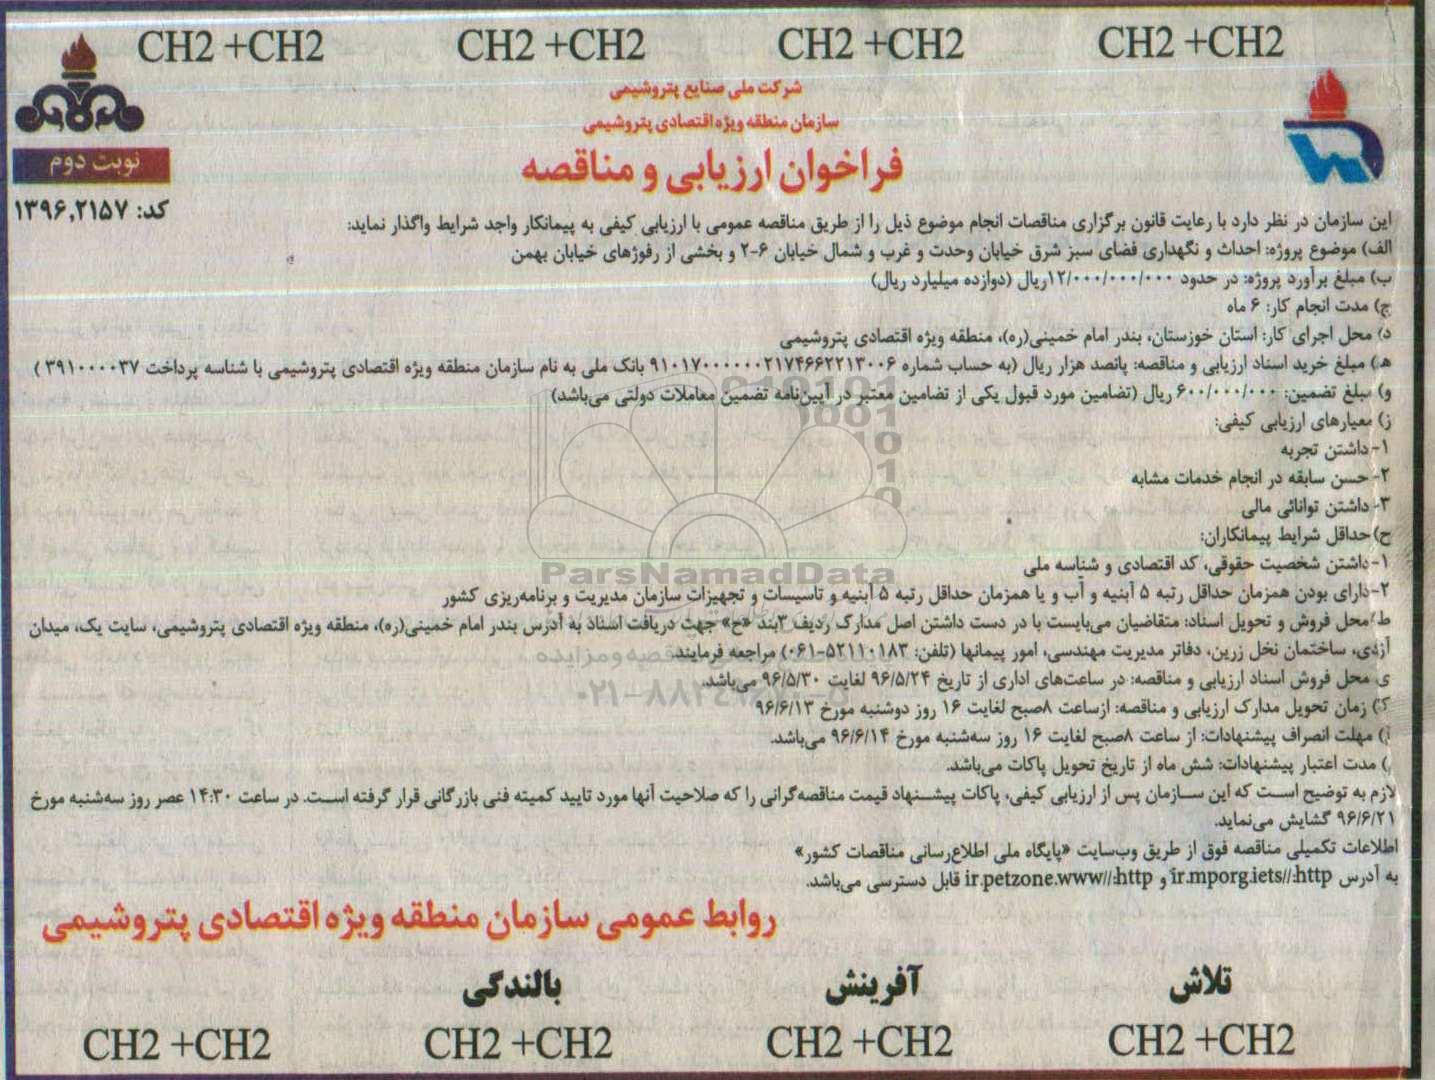 CH2 +CH2 CH2 +CH2 CH2 +CH2 CH2 +CH2
شرکت ملی صنایع پتروشیمی
سازمان منطقه ویژه اقتصادی پتروشیمی
فراخوان ارزیابی و مناقصه
نوبت دوم
کد: ۱۳۹۶,۲۱۵۷
این سازمان در نظر دارد با رعایت قانون برگزاری مناقصات انجام موضوع ذیل را از طریق مناقصه عمومی با ارزیابی کیفی به پیمانکار واجد شرایط واگذار نماید:
الف) موضوع پروژه: احداث و نگهداری فضای سبز شرق خیابان وحدت و غرب و شمال خیابان ۶-۲ و بخشی از رفوژهای خیابان بهمن
ب) مبلغ برآورد پروژه: در حدود ۱۲/۰۰۰/۰۰۰/۰۰۰ریال (دوازده میلیارد ریال)
ج) مدت انجام کار: ۶ ماه
د) محل اجرای کار: استان خوزستان، بندر امام خمینی(ره)، منطقه ویژه اقتصادی پتروشیمی
هـ) مبلغ خرید اسناد ارزیابی و مناقصه: پانصد هزار ریال (به حساب شماره ۹۱۰۱۷۰۰۰۰۰۰۰۲۱۷۴۶۶۲۲۱۳۰۰۶ بانک ملی به نام سازمان منطقه ویژه اقتصادی پتروشیمی با شناسه پرداخت ۳۹۱۰۰۰۰۳۷ )
و) مبلغ تضمین: ۶۰۰/۰۰۰/۰۰۰ ریال (تضامین مورد قبول یکی از تضامین معتبر در آیین‌نامه تضمین معاملات دولتی می‌باشد)
ز) معیارهای ارزیابی کیفی:
۱-داشتن تجربه
۲-حسن سابقه در انجام خدمات مشابه
۳-داشتن توانائی مالی
ح)حداقل شرایط پیمانکاران:
۱-داشتن شخصیت حقوقی، کد اقتصادی و شناسه ملی
۲-دارای بودن همزمان حداقل رتبه ۵ آبنیه و آب و یا همزمان حداقل رتبه ۵ ابنیه و تاسیسات و تجهیزات سازمان مدیریت و برنامه‌ریزی کشور
ط)محل فروش و تحویل اسناد: متقاضیان می‌بایست با در دست داشتن اصل مدارک ردیف ۳بند «ح» جهت دریافت اسناد به آدرس بندر امام خمینی(ره)، منطقه ویژه اقتصادی پتروشیمی، سایت یک، میدان
آزادی، ساختمان نخل زرین، دفاتر مدیریت مهندسی، امور پیمانها (تلفن: ۵۲۱۱۰۱۸۳-۰۶۱) مراجعه فرمایند.
ی) محل فروش اسناد ارزیابی و مناقصه: در ساعت‌های اداری از تاریخ ۹۶/۵/۲۴ لغایت ۹۶/۵/۳۰ می‌باشد.
ک) زمان تحویل مدارک ارزیابی و مناقصه: ازساعت ۸صبح لغایت ۱۶ روز دوشنبه مورخ ۹۶/۶/۱۳
) مهلت انصراف پیشنهادات: از ساعت ۸صبح لغایت ۱۶ روز سه‌شنبه مورخ ۹۶/۶/۱۴ می‌باشد.
) مدت اعتبار پیشنهادات: شش ماه از تاریخ تحویل پاکات می‌باشد.
لازم به توضیح است که این سازمان پس از ارزیابی کیفی، پاکات پیشنهاد قیمت مناقصه‌گرانی را که صلاحیت آنها مورد تایید کمیته فنی بازرگانی قرار گرفته است. در ساعت ۱۴:۳۰ عصر روز سه‌شنبه مورخ
۹۶/۶/۲۱ گشایش می‌نماید.
اطلاعات تکمیلی مناقصه فوق از طریق وب‌سایت «پایگاه ملی اطلاع‌رسانی مناقصات کشور»
به آدرس ir.mporg.iets//:http و ir.petzone.www//:http قابل دسترسی می‌باشد.
روابط عمومی سازمان منطقه ویژه اقتصادی پتروشیمی
تلاش آفرینش بالندگی
CH2 +CH2 CH2 +CH2 CH2 +CH2 CH2 +CH2
ParsNamadData